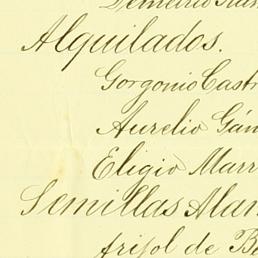 Alquilados.
Gorgonio Castr
Aurelio Gám
Eligio Marr
Semillas Alam
frijol de Ba